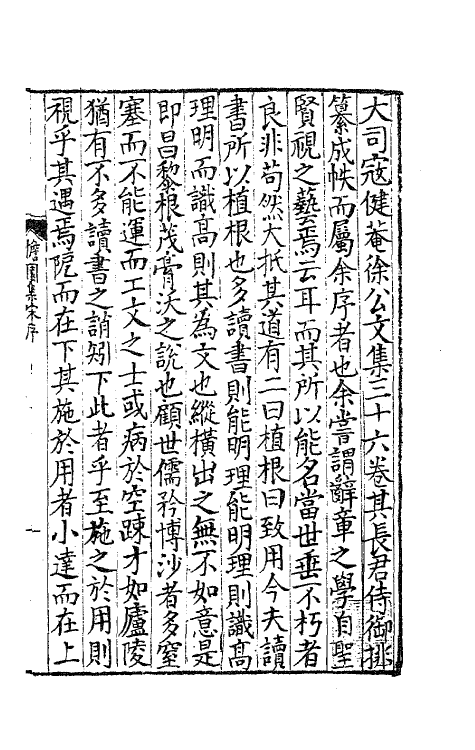 大司寇健菴徐公文集三十六卷其長君侍御排
纂成帙而屬余序者也余嘗謂辭章之學自聖
賢視之藝焉云耳而其所以能名當世垂不朽者
良非苟然大抵其道有二曰植根曰致用今夫讀
書所以植根也多讀書則能明理能明理則識高
理明而識高則其為文也縱橫出之無不如意是
即昌黎根茂膏沃之說也顧世儒矜博沙者多窒
塞而不能運而工文之士或病於空踈才如廬陵
猶有不多讀書之誚矧下此者乎至施之於用則
視乎其遇焉阨而在下其施於用者小達而在上
憺園集宋序
一